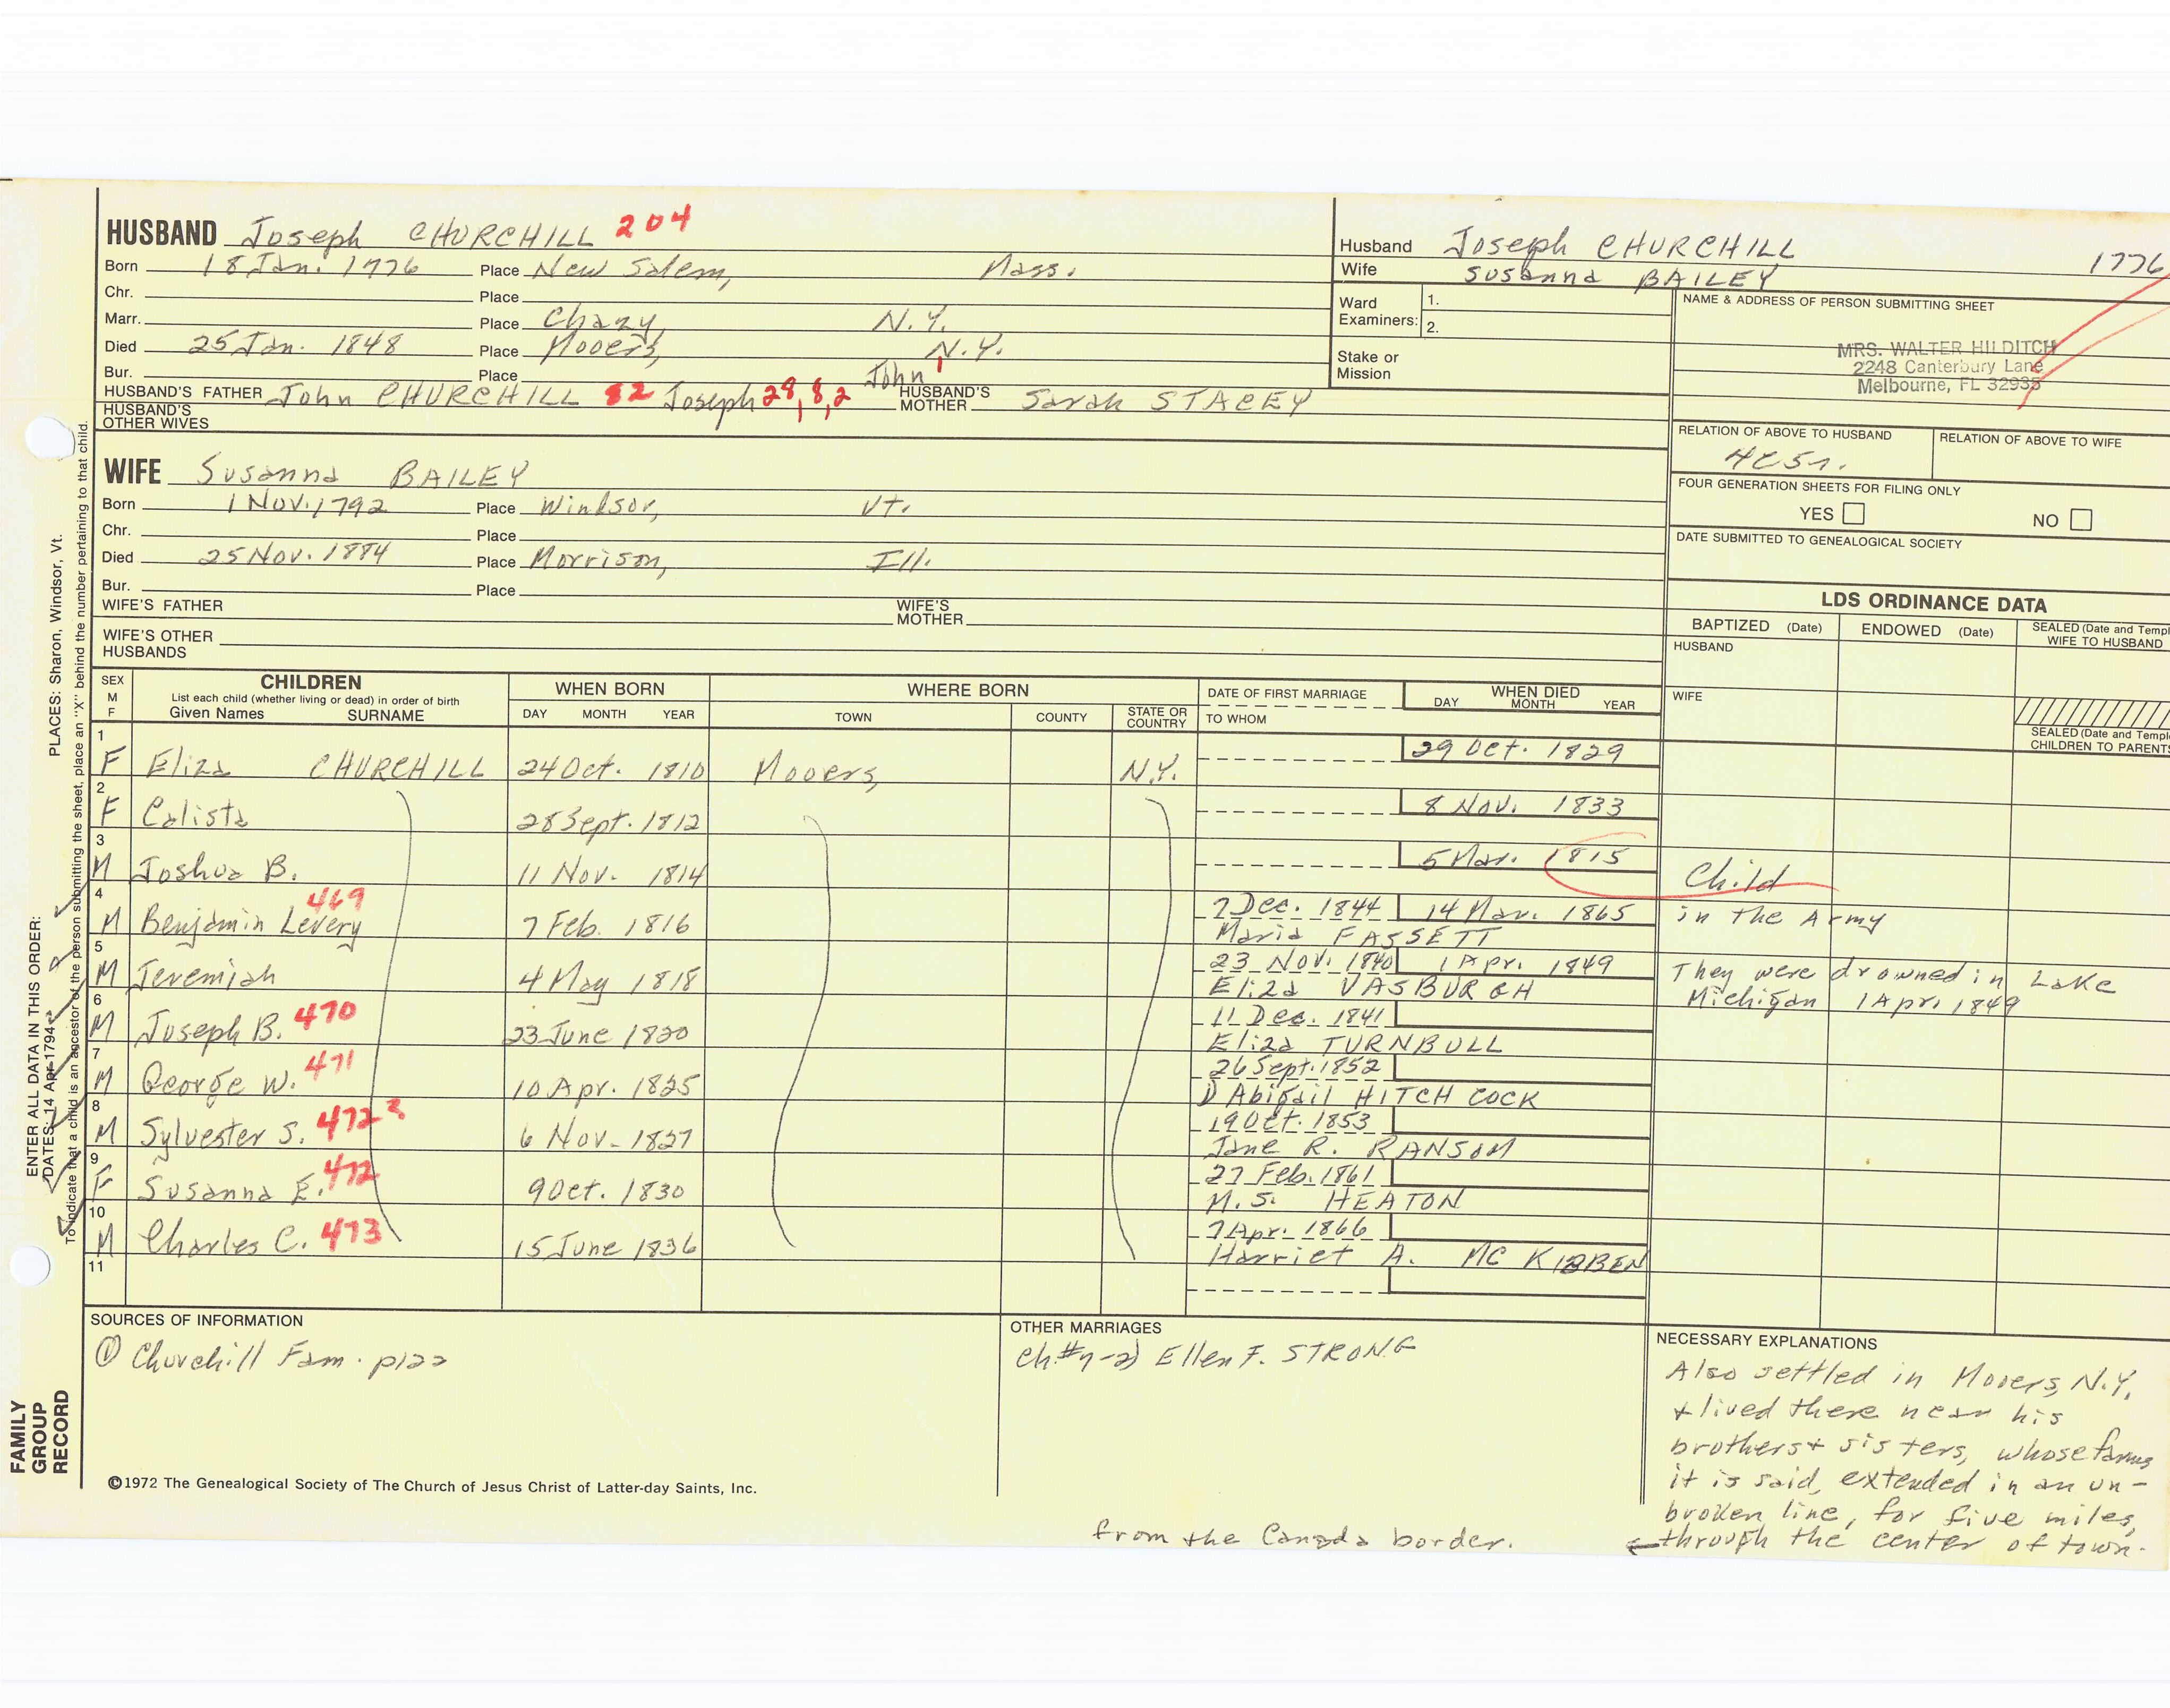 HUSBAND Joseph CHURCHILL 204
Born 18 Jan. 1776 Place New Salem, Mass.
Chr. Place
Marr. Place Chazy, N.Y.
Died 25 Jan. 1848 Place Mooers, N.Y.
Bur. Place
HUSBAND'S FATHER John CHURCHILL 82 Joseph 28, 8, 2 John 1 HUSBAND'S MOTHER Sarah STACEY
HUSBAND'S OTHER WIVES
WIFE Susanna BAILEY
Born 1 Nov. 1792 Place Windsor, Vt.
Chr. Place
Died 25 Nov. 1884 Place Morrison, Ill.
Bur. Place
WIFE'S FATHER WIFE'S MOTHER
WIFE'S OTHER HUSBANDS
Husband Joseph CHURCHILL 1776
Wife Susanna BAILEY
Ward Examiners: 1.
2.
Stake or Mission
NAME & ADDRESS OF PERSON SUBMITTING SHEET
MRS. WALTER HILDITCH
2248 Canterbury Lane
Melbourne, FL 32935
RELATION OF ABOVE TO HUSBAND RELATION OF ABOVE TO WIFE
FOUR GENERATION SHEETS FOR FILING ONLY
YES NO
DATE SUBMITTED TO GENEALOGICAL SOCIETY
LDS ORDINANCE DATA
BAPTIZED (Date) ENDOWED (Date) SEALED (Date and Templ
WIFE TO HUSBAND
HUSBAND
WIFE
SEALED (Date and Templ
CHILDREN TO PARENTS
SEX M F CHILDREN WHEN BORN WHERE BORN DATE OF FIRST MARRIAGE WHEN DIED
List each child (whether living or dead) in order of birth
Given Names SURNAME DAY MONTH YEAR TOWN COUNTY STATE OR COUNTRY TO WHOM DAY MONTH YEAR
1 F Eliza CHURCHILL 24 Oct. 1810 Mooers, N.Y. 29 Oct. 1829
2 F Calista 28 Sept. 1812 8 Nov. 1833
3 M Joshua B. 11 Nov. 1814 5 Mar. 1815 Child
4 M Benjamin Levery 469 7 Feb. 1816 7 Dec. 1844 14 Mar. 1865 in the Army
Maria FASSETT
5 M Jeremiah 4 May 1818 23 Nov. 1840 1 Apr. 1849 They were drowned in Lake
Eliza VASBURGH Michigan 1 Apr. 1849
6 M Joseph B. 470 23 June 1820 11 Dec. 1841
Eliza TURNBULL
7 M George W. 471 10 Apr. 1825 26 Sept. 1852
1) Abigail HITCHCOCK
8 M Sylvester S. 472 2 6 Nov. 1827 19 Oct. 1853
Jane R. RANSOM
9 F Susanna E. 472 9 Oct. 1830 27 Feb. 1861
M.S. HEATON
10 M Charles C. 473 15 June 1836 7 Apr. 1866
Harriet A. MC KIBBEN
11
SOURCES OF INFORMATION
① Churchill Fam. p122
OTHER MARRIAGES
Ch.#7-2) Ellen F. STRONG
NECESSARY EXPLANATIONS
Also settled in Mooers, N.Y.
+ lived there near his
brothers + sisters, whose farms
it is said, extended in an un-
broken line, for five miles,
through the center of town.
from the Canada border.
©1972 The Genealogical Society of The Church of Jesus Christ of Latter-day Saints, Inc.
FAMILY
GROUP
RECORD
ENTER ALL DATA IN THIS ORDER:
DATES: 14 Apr 1794
PLACES: Sharon, Windsor, Vt.
To indicate that a child is an ancestor of the person submitting the sheet, place an "X" behind the number pertaining to that child.